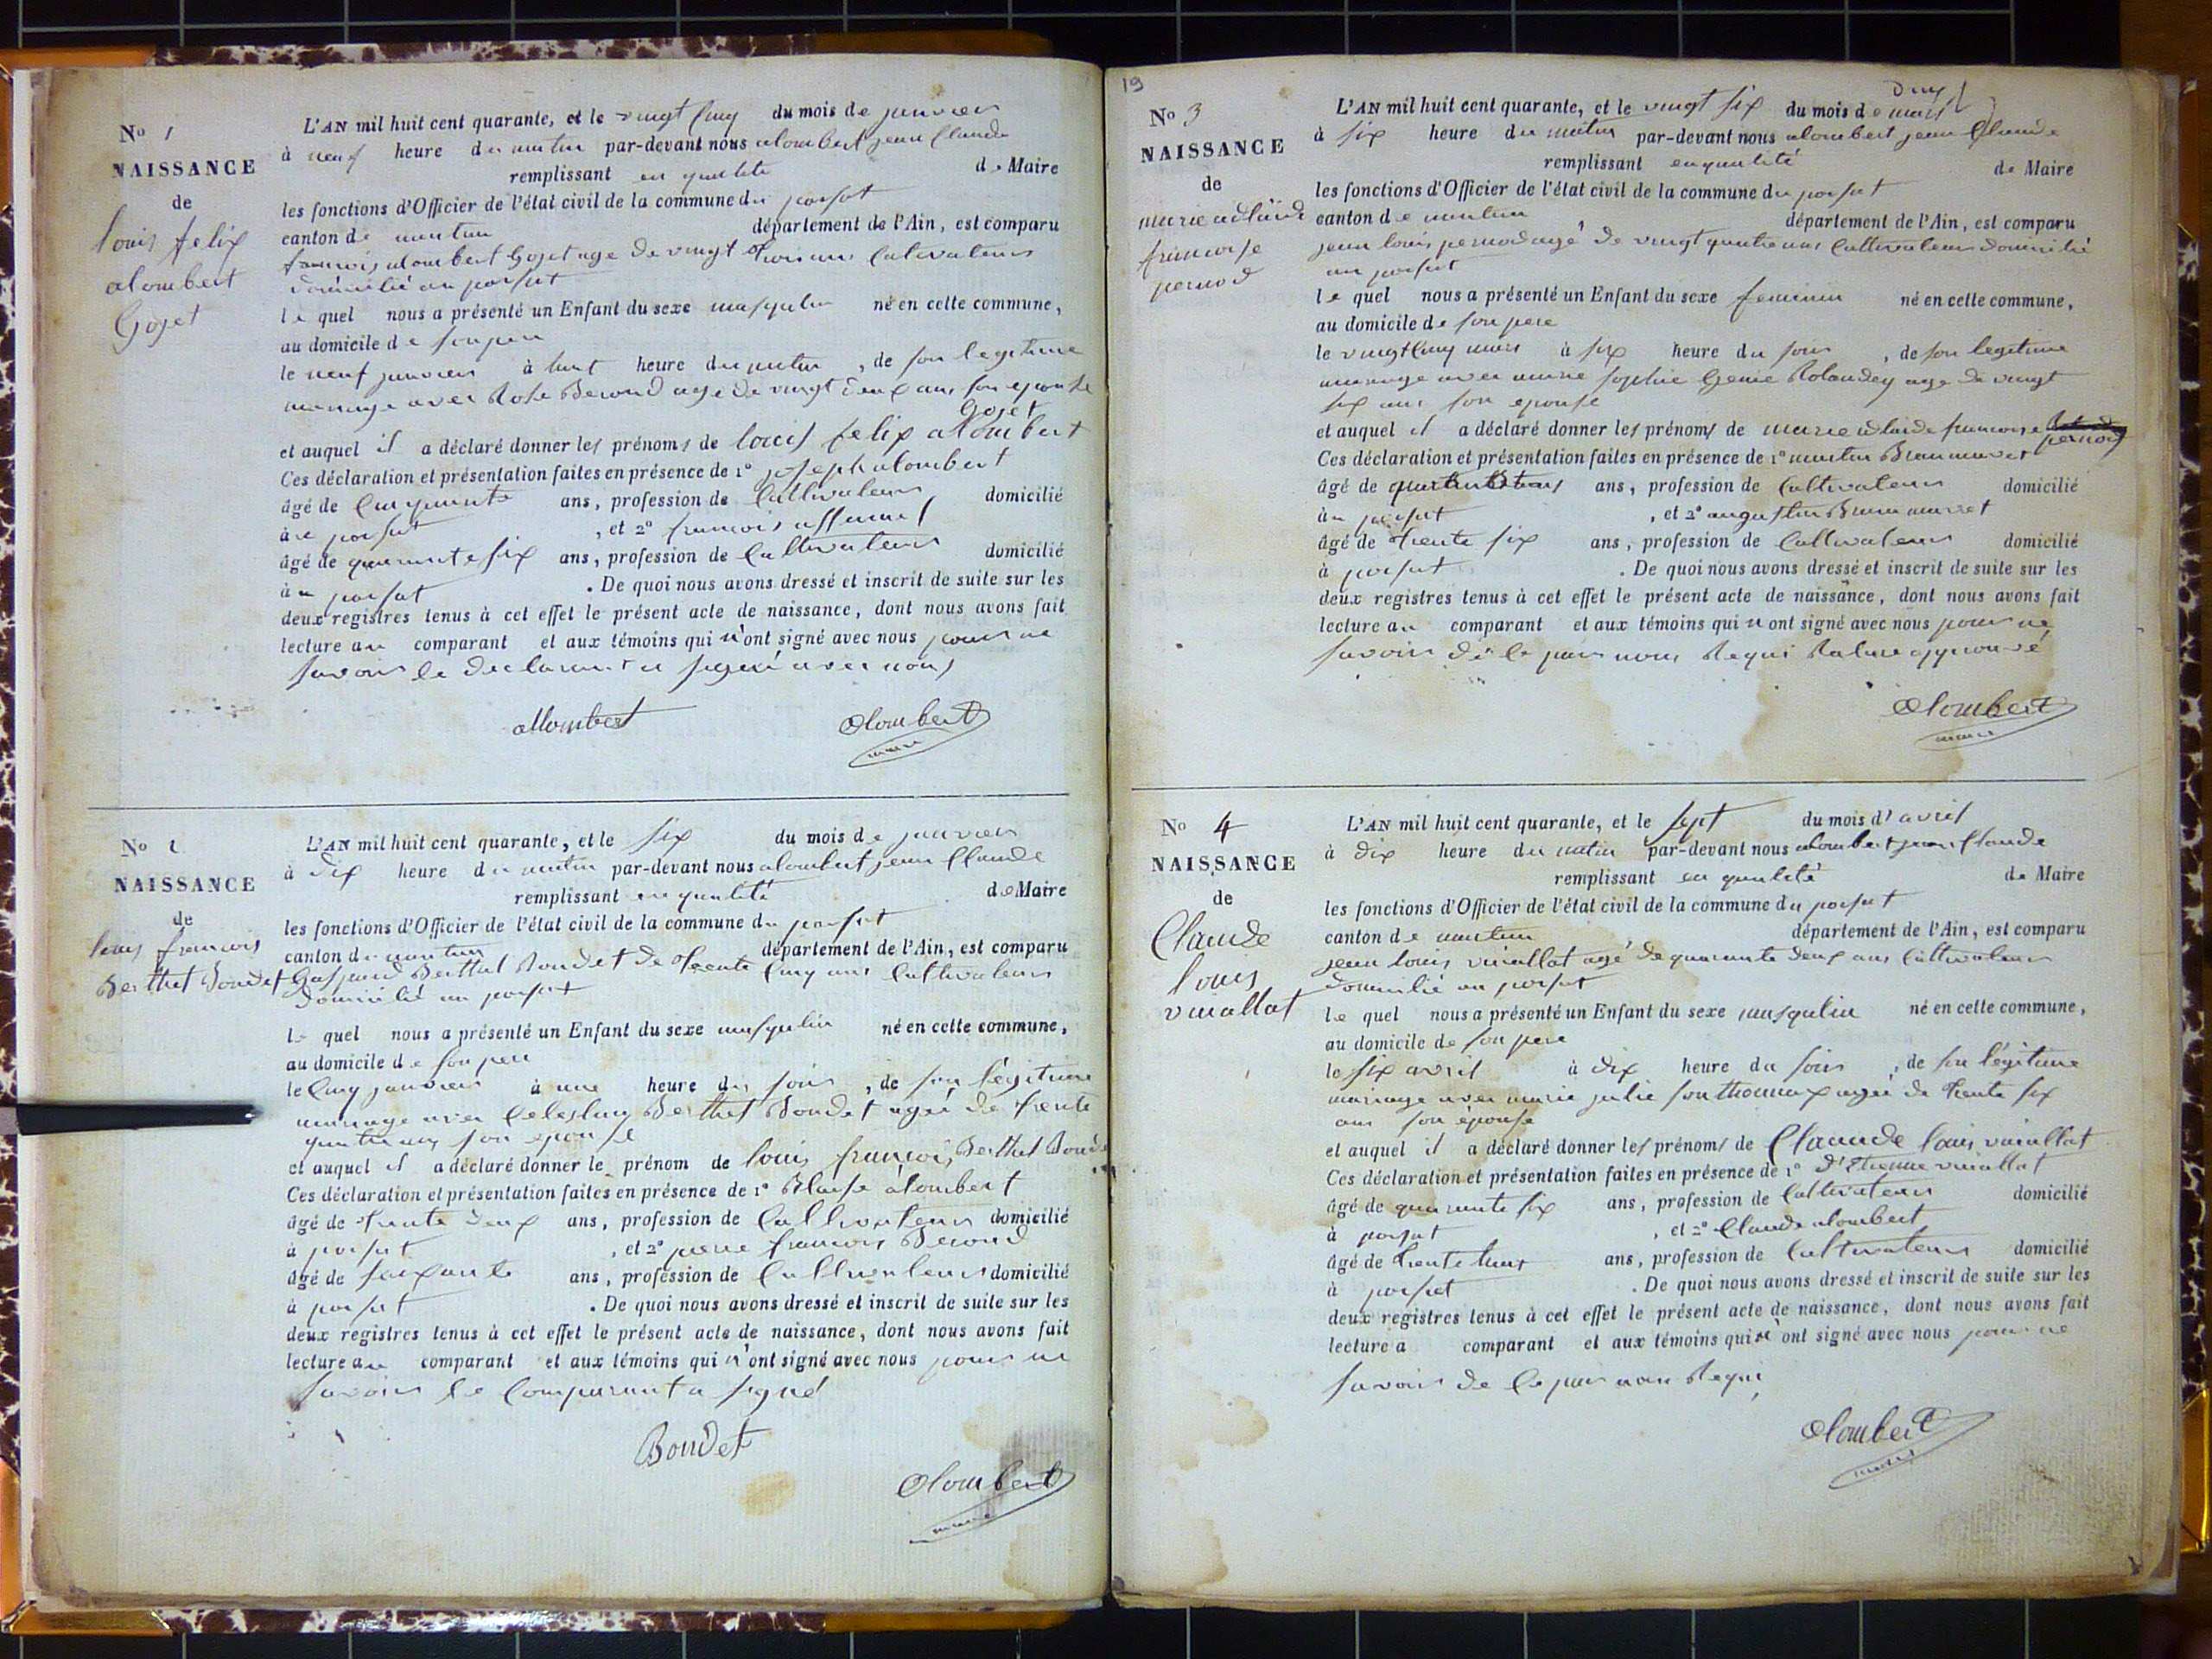 No 1
NAISSANCE
de
louis felix
alombert
Gojet
L'AN mil huit cent quarante, et le vingt cinq du mois de janvier
à neuf heure du matin par-devant nous alombert jean Claude
remplissant en qualité de Maire
les fonctions d'Officier de l'état civil de la commune du porsat
canton de nantua département de l'Ain, est comparu
francois alombert Gojet age de vingt trois ans Cultivateur
domicilié au porsat
le quel nous a présenté un Enfant du sexe masqulin né en cette commune,
au domicile de son pere
le neuf janvier à heure du matin, de son legitime
mariage avec Rose Berond age de vingt deux ans son epouse
Gojet
et auquel il a déclaré donner les prénoms de louis felix alombert
Ces déclaration et présentation faites en présence de 1° joseph alombert
âgé de Cinquante ans, profession de Cultivateur domicilié
à porsat, et 2° francois
âgé de quarante six ans, profession de Cultivateur domicilié
au porsat. De quoi nous avons dressé et inscrit de suite sur les
deux registres tenus à cet effet le présent acte de naissance, dont nous avons fait
lecture au comparant et aux témoins qui n'ont signé avec nous pour ne
savoir le declarant a signé avec nous
allombert alombert
maire
No
NAISSANCE
de
louis francois
Berthet Bondet
L'AN mil huit cent quarante, et le six du mois de janvier
à dix heure du matin par-devant nous alombert jean Claude
remplissant en qualité de Maire
les fonctions d'Officier de l'état civil de la commune du porsat
canton de nantua département de l'Ain, est comparu
Gaspard Berthet Bondet de trente Cinq ans Cultivateur
domicilié au porsat
le quel nous a présenté un Enfant du sexe masqulin né en cette commune,
au domicile de son pere
le Cinq janvier à une heure du soir, de son légitime
mariage avec Celestine Berthet Bondet agée de trente
quatre ans son epouse
et auquel il a déclaré donner le prénom de louis francois Berthet Bondet
Ces déclaration et présentation faites en présence de 1° Blaise alombert
âgé de trente deux ans, profession de Cultivateur domicilié
à porsat, et 2° pierre francois Berond
âgé de soixante ans, profession de Cultivateur domicilié
à porsat. De quoi nous avons dressé et inscrit de suite sur les
deux registres tenus à cet effet le présent acte de naissance, dont nous avons fait
lecture au comparant et aux témoins qui n'ont signé avec nous pour ne
savoir le Comparant a signé
Bondet
alombert
maire
19
No 3
NAISSANCE
de
marie adlaïde
francoise
pernod
L'AN mil huit cent quarante, et le vingt six du mois de mars
à six heure du matin par-devant nous alombert jean Claude
remplissant en qualité de Maire
les fonctions d'Officier de l'état civil de la commune du porsat
canton de nantua département de l'Ain, est comparu
jean louis pernod agé de vingt quatre ans Cultivateur domicilié
au porsat
le quel nous a présenté un Enfant du sexe feminin né en cette commune,
au domicile de son pere
le vingt Cinq mars à six heure du soir, de son legitime
mariage avec marie sophie Rolandey age de vingt
six ans son epouse
et auquel il a déclaré donner les prénoms de marie adlaide francoise pernod
Ces déclaration et présentation faites en présence de 1° martin
âgé de ans, profession de Cultivateur domicilié
au porsat, et 2° augustin
âgé de trente six ans, profession de Cultivateur domicilié
à porsat. De quoi nous avons dressé et inscrit de suite sur les
deux registres tenus à cet effet le présent acte de naissance, dont nous avons fait
lecture au comparant et aux témoins qui n ont signé avec nous pour ne
savoir de ce par nous Requi Rature approuvé
alombert
maire
No 4
NAISSANCE
de
Claude
louis
vuiallat
L'AN mil huit cent quarante, et le sept du mois d'avril
à dix heure du matin par-devant nous alombert jean Claude
remplissant en qualité de Maire
les fonctions d'Officier de l'état civil de la commune du porsat
canton de nantua département de l'Ain, est comparu
jean louis vuiallat agé de quarante deux ans Cultivateur
domicilié au porsat
le quel nous a présenté un Enfant du sexe masqulin né en cette commune,
au domicile de son pere
le six avril à dix heure du soir, de son légitime
mariage avec marie julie sonthonnax agée de trente six
ans son épouse
et auquel il a déclaré donner les prénoms de Claude louis vuiallat
Ces déclaration et présentation faites en présence de 1° d'Etienne vuiallat
âgé de quarante six ans, profession de Cultivateur domicilié
à porsat, et 2° Claude alombert
âgé de trente ans, profession de Cultivateur domicilié
à porsat. De quoi nous avons dressé et inscrit de suite sur les
deux registres tenus à cet effet le présent acte de naissance, dont nous avons fait
lecture a comparant et aux témoins qui n'ont signé avec nous pour ne
savoir de ce par nous Requi
alombert
maire